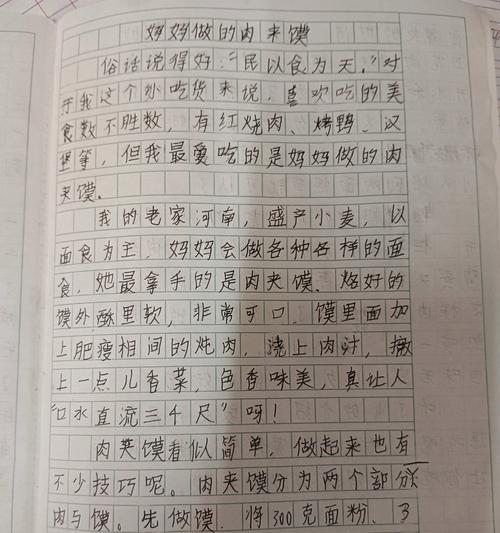 妈妈做的肉夹馍
俗话说得好："民以食为天。"对
于我这个小吃货来说，喜欢吃的美
食数不胜数，有红烧肉、烤鸭、汉
堡等，但我最爱吃的是妈妈做的肉
夹馍。
我的老家河南，盛产小麦，以
面食为主，妈妈会做各种各样的面
食，她最拿手的是肉夹馍。烙好的
馍外酥里软，非常可口，馍里面加
上肥瘦相间的炖肉，浇上肉汁，撒
上一点儿香菜，色香味美，真让人
"口水直流三千尺"呀！
肉夹馍看似简单，做起来也有
不少技巧呢。肉夹馍分为两个部分
肉与馍。先做馍，将300克面粉、3